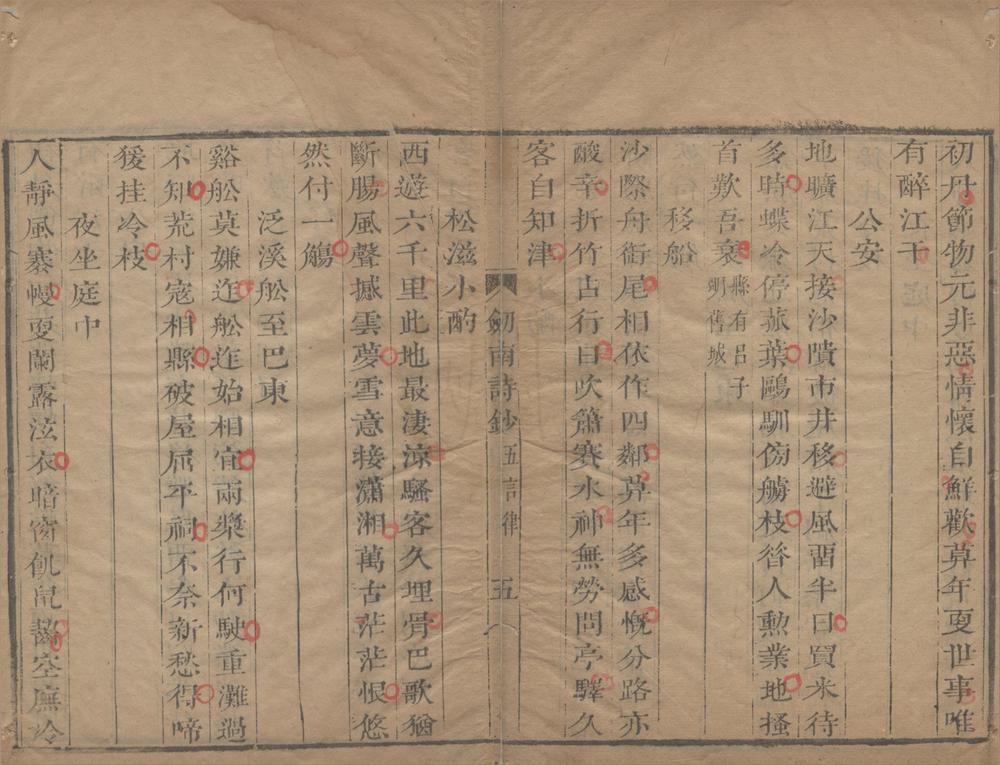 初丹節物元非惡情懷自鮮歡莫年更世事唯
有醉江干
公安
地曠江天接沙隤市井移避風畱半日買米待
多時蝶冷停菰葉鷗馴傍舫枝昔人勳業地搔
首歎吾衰縣有呂子明舊城
移船
沙際舟銜尾相依作四鄰莫年多感慨分路亦
酸辛折竹占行日吹簫賽水神無勞問亭驛久
客自知津
劒南詩鈔 五言律 五
松滋小酌
西遊六千里此地最淒涼騷客久埋骨巴歌猶
斷腸風聲撼雲夢雪意接瀟湘萬古茫茫恨悠
然付一觴
泛溪舩至巴東
谿舩莫嫌迮舩迮始相宜兩槳行何駛重灘過
不知荒村寇相縣破屋屈平祠不奈新愁得啼
猨挂冷枝
夜坐庭中
人靜風褰幔更闌露泫衣暗窗飢鼠齧空廡冷